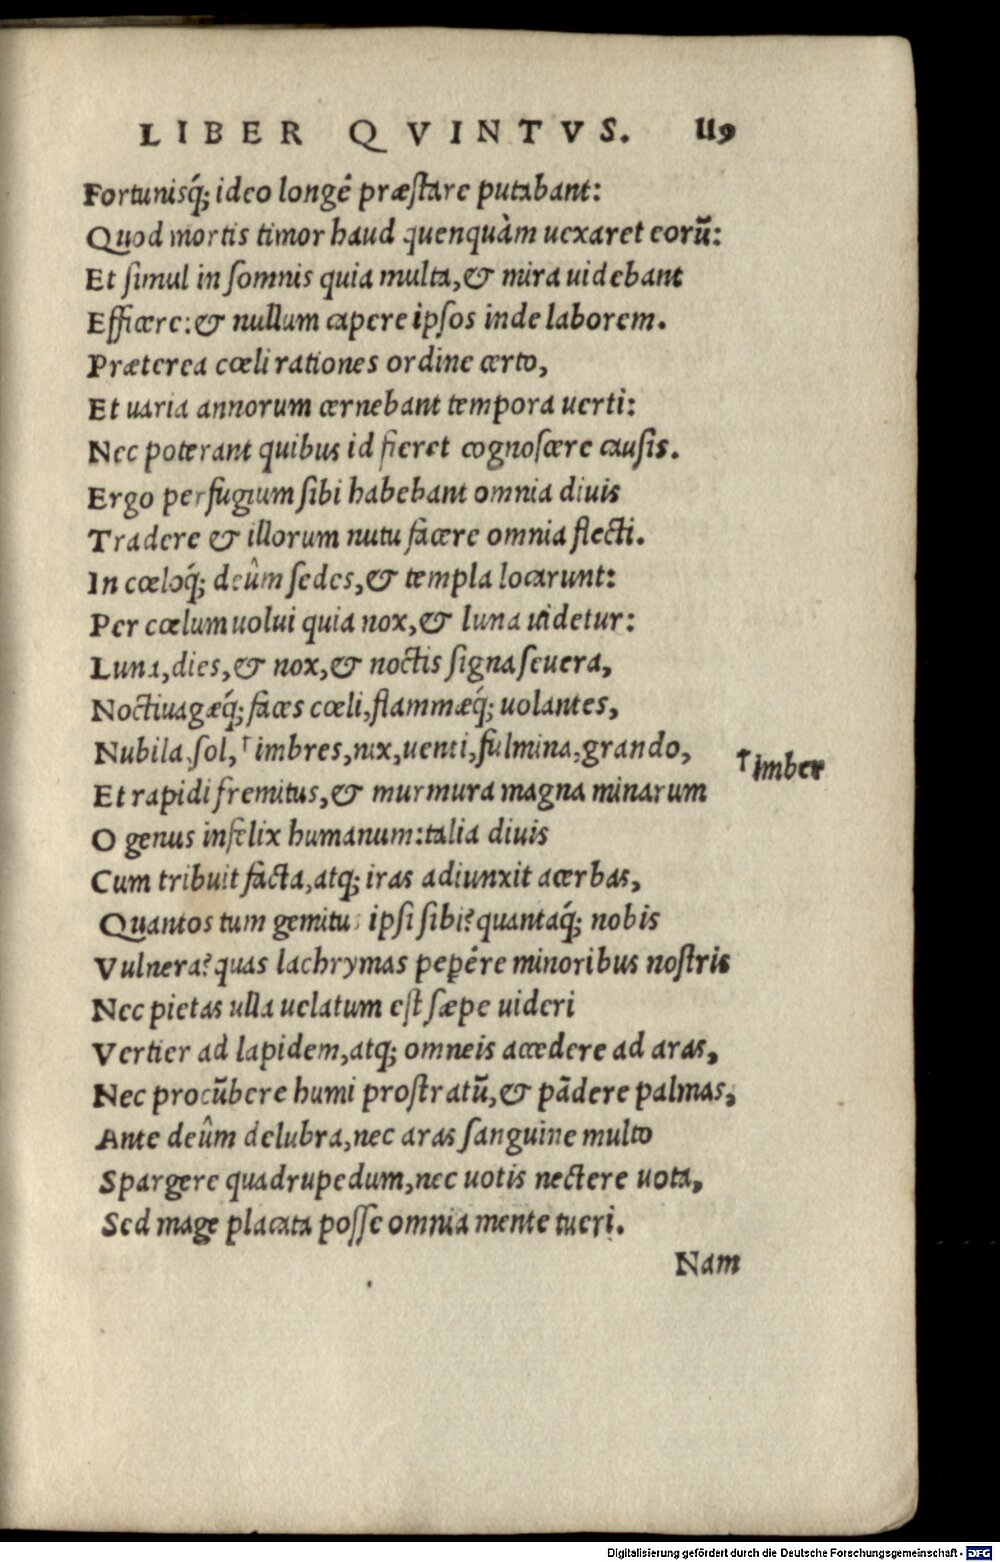 LIBER QVINTVS. 119
Fortunisq́; ideo longê præstare putabant:
Quod mortis timor haud quenquàm uexaret eorũ:
Et simul in somnis quia multa, & mira uidebant
Efficere: & nullum capere ipsos inde laborem.
Præterea cœli rationes ordine certo,
Et uaria annorum cernebant tempora uerti:
Nec poterant quibus id fieret cognoscere causis.
Ergo perfugium sibi habebant omnia diuis
Tradere & illorum nutu facere omnia flecti.
In cœloq́; deûm sedes, & templa locarunt:
Per cœlum uolui quia nox, & luna uidetur:
Luna, dies, & nox, & noctis signa seuera,
Noctiuagæq́; faces cœli, flammæq́; uolantes,
Nubila, sol, ꜒imbres, nix, uenti, fulmina, grando,
꜒imber
Et rapidi fremitus, & murmura magna minarum
O genus infelix humanum: talia diuis
Cum tribuit facta, atq; iras adiunxit acerbas,
Quantos tum gemitus ipsi sibi? quantaq́; nobis
Vulnera? quas lachrymas pepêre minoribus nostris
Nec pietas ulla uelatum est sæpe uideri
Vertier ad lapidem, atq; omneis accedere ad aras,
Nec procũbere humi prostratũ, & pãdere palmas,
Ante deûm delubra, nec aras sanguine multo
Spargere quadrupedum, nec uotis nectere uota,
Sed mage placata posse omnia mente tueri.
Nam
Digitalisierung gefördert durch die Deutsche Forschungsgemeinschaft - DFG